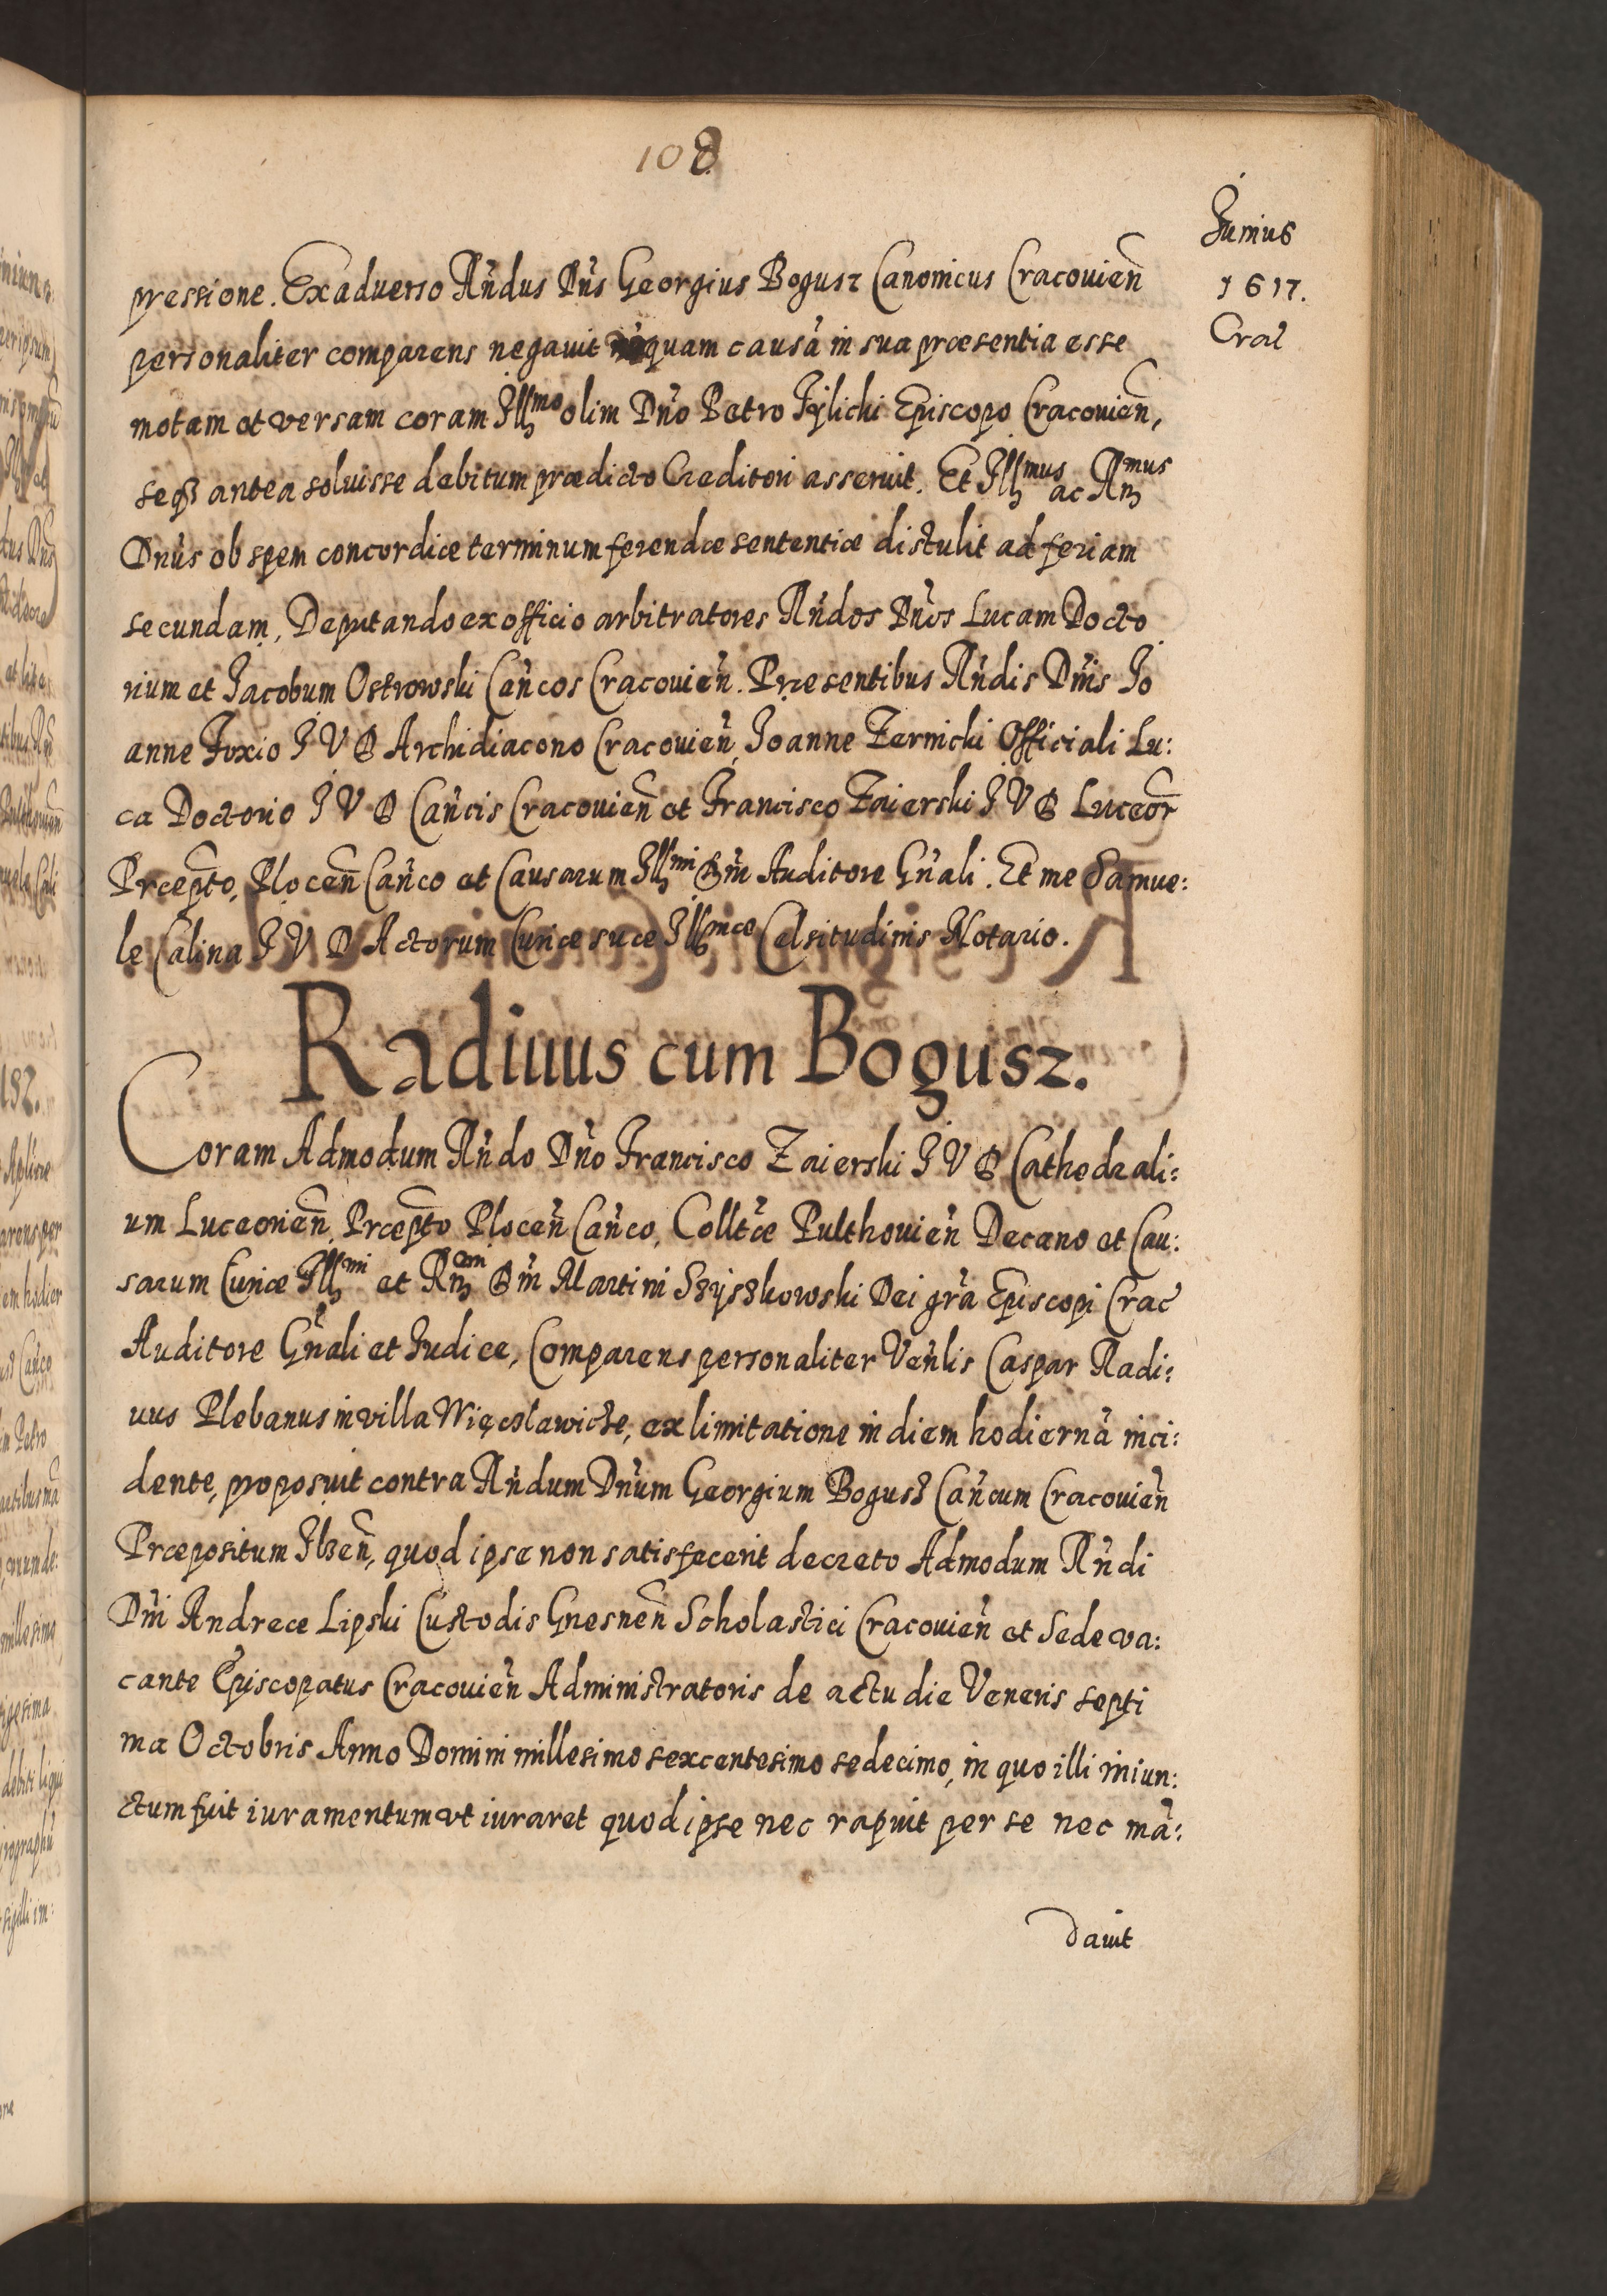 108
Junius
1617.
Crac̄
pressione. Ex aduerso Rn̄dus Dn̄s Georgius Bogusz Canonicus Cracouien̄
personaliter comparens negauit quam causā in sua præsentia esse
motam et versam coram Illmo olim Dn̄o Petro Tÿlicki Episcopo Cracouien̄,
seqȝ antea soluisse debitum prædicto Creditori asseruit. Et Illmus ac Rmus
Dn̄us ob spem concordiæ terminum ferendæ sententiæ distulit ad feriam
secundam, Deputando ex officio arbitratores Rn̄dos Dn̄os Lucam Docto
rium et Jacobum Ostrowski Can̄cos Cracouien̄. Præsentibus Rn̄dis Dn̄is Jo
anne Foxio J V D Archidiacono Cracouien̄, Joanne Zernicki Officiali Lu:
ca Doctorio J V D Can̄cis Cracouien̄ et Francisco Zaierski J V D Luceor̄
Præpto, Plocen̄ Can̄co et Causarum Illmi Dn̄i Auditore Gn̄ali. Et me Samue:
le Calina J V D Actorum Curiæ suæ Illmæ Celsitudinis Notario.
Radiuus cum Bogusz.
Coram Admodum Rn̄do Dn̄o Francisco Zaierski J V D Cathedrali:
um Luceorien̄, Præpto Plocen̄ Can̄co, Colltæ Pulthouien̄ Decano et Cau:
sarum Curiæ Illmi et Rm Dn̄i Martini Szÿszkowski Dei grā Episcopi Crac̄
Auditore Gn̄ali et Judice, Comparens personaliter Ven̄lis Caspar Radi:
uus Plebanus in villa Więcslawicze, ex limitatione in diem hodiernā inci:
dente, proposuit contra Rn̄dum Dn̄um Georgium Bogusz Can̄cum Cracouien̄
Præpositum Ilzen̄, quod ipse non satisfecerit decreto Admodum Rn̄di
Dn̄i Andreæ Lipski Custodis Gnesnen̄ Scholastici Cracouien̄ et Sede va:
cante Episcopatus Cracouien̄ Administratoris de actu die Veneris septi
ma Octobris Anno Domini millesimo sexcentesimo sedecimo, in quo illi iniun:
ctum fuit iuramentum vt iuraret quod ipse nec rapuit per se nec mā:
dauit